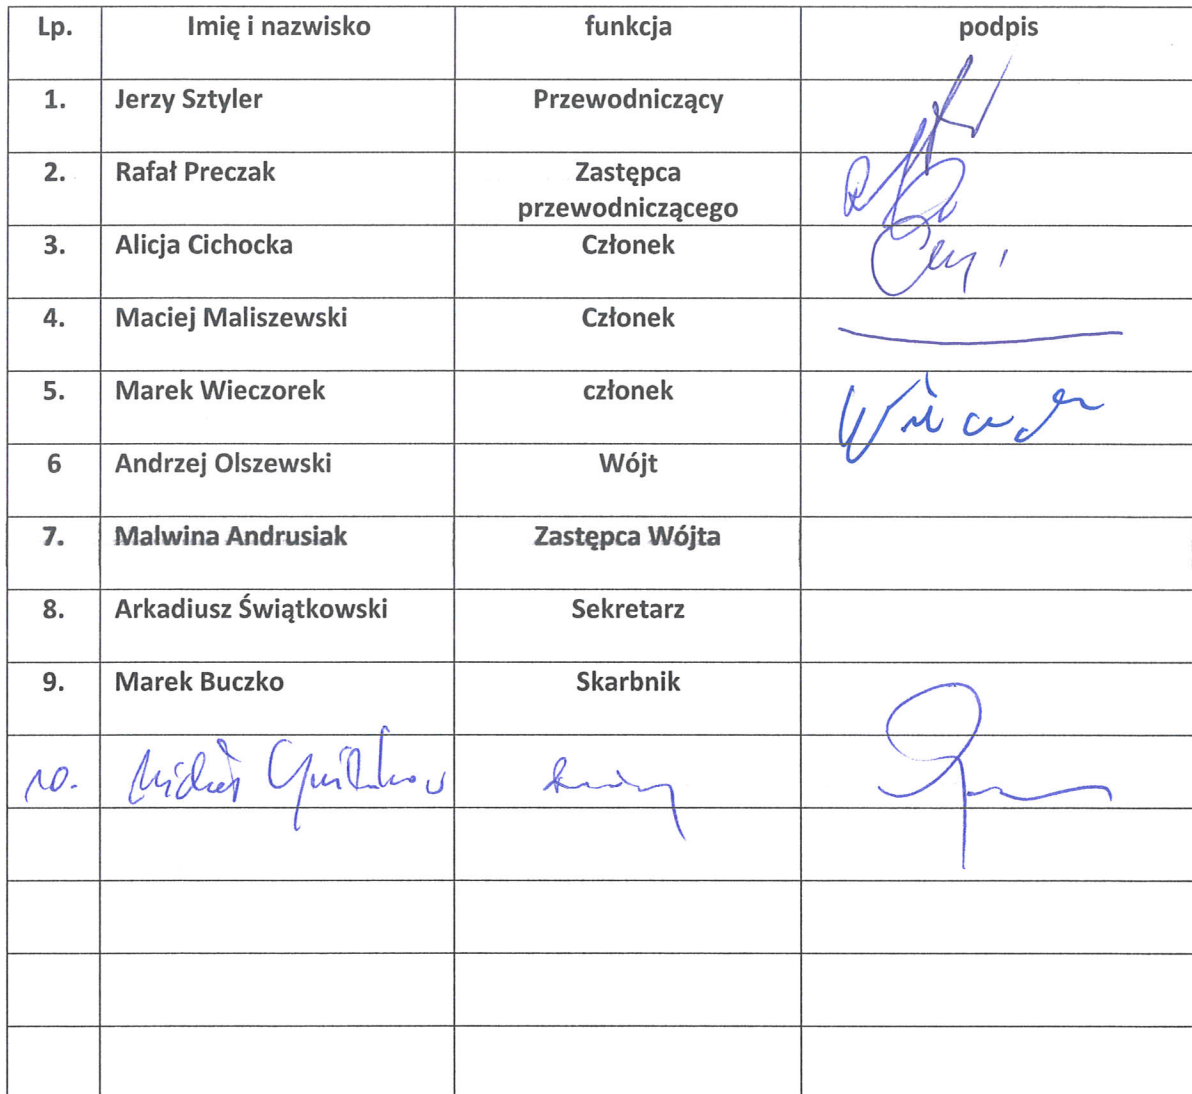 Lp. Imię i nazwisko funkcja podpis
1. Jerzy Sztyler Przewodniczący
2. Rafał Preczak Zastępca
przewodniczącego
3. Alicja Cichocka Członek
4. Maciej Maliszewski Członek
5. Marek Wieczorek członek
6 Andrzej Olszewski Wójt
7. Malwina Andrusiak Zastępca Wójta
8. Arkadiusz Świątkowski Sekretarz
9. Marek Buczko Skarbnik
10. Michał